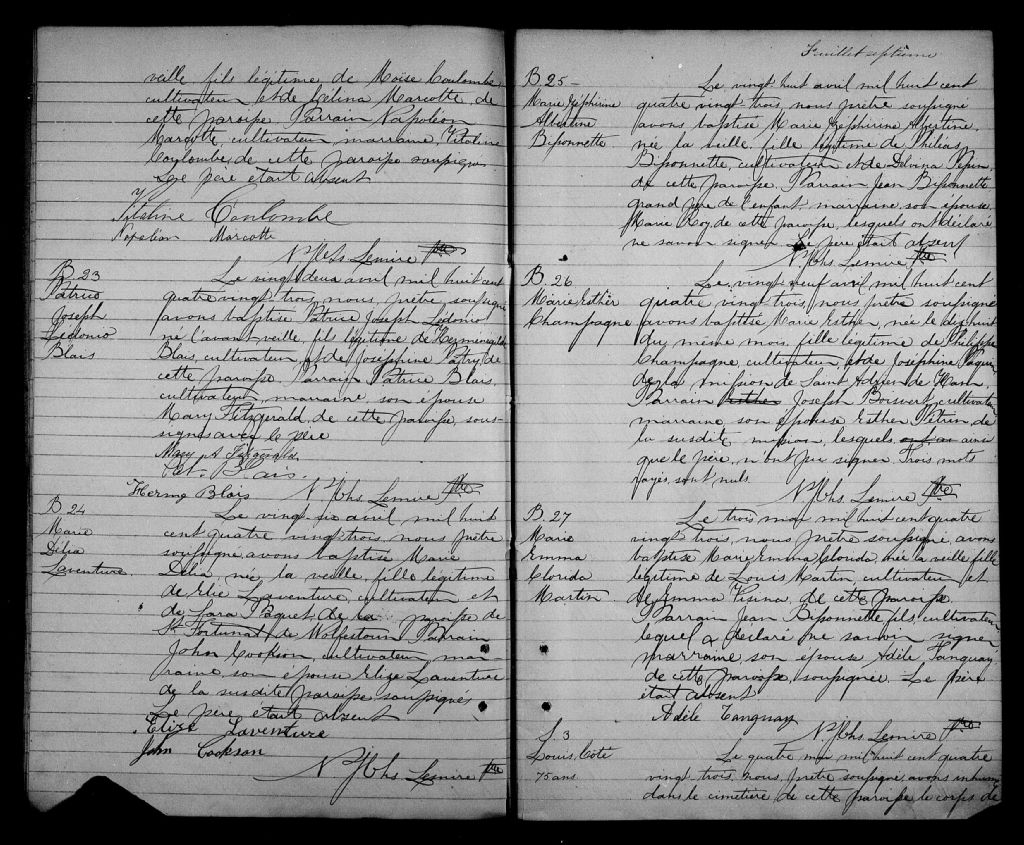 veille fils légitime de Moïse Coulombe
cultivateur et de Célina Marcotte de
cette paroisse Parrain Napoléon
Marcotte, cultivateur, marraine, Vitaline
Coulombe, de cette paroisse soussignés
Le père était absent
Vitaline Coulombe
Napoléon Marcotte
N. Chs Lemire Ptre
B. 23
Patrice
Joseph
Ledonio
Blais
Le vingt deux avril mil huit cent
quatre vingt trois, nous, prêtre, soussigné
avons baptisé Patrice Joseph Ledonio
né l'avant veille, fils légitime de Herménégilde
Blais, cultivateur, et de Joséphine Patry, de
cette paroisse. Parrain Patrice Blais,
cultivateur, marraine son épouse
Mary Fitzgerald, de cette paroisse, sous-
signés avec le père
Mary A Fitzgerald
Pat. Blais.
Herme Blais N. Chs Lemire Ptre
B. 24
Marie
Délia
Laventure.
Le vingt avril mil huit
cent quatre vingt trois, nous prêtre
soussigné, avons baptisé Marie
Délia née la veille, fille légitime
de Elie Laventure, cultivateur et
de Sara Paquet de la paroisse de
St Fortunat de Wolfestown Parrain
John Cookson, cultivateur, mar
raine, son épouse Elise Laventure
de la susdite paroisse, soussignés
Le père était absent
Elize Laventure
John Cookson
N. Chs Lemire Ptre
Feuillet septième
B 25
Marie Zéphirine
Albertine
Bissonnette
Le vingt huit avril mil huit cent
quatre vingt trois, nous prêtre soussigné
avons baptisé Marie Zéphirine Albertine,
née la veille, fille légitime de Philias
Bissonnette, cultivateur et de Delvina Pepin
de cette paroisse. Parrain Jean Bissonnette
grand père de l'enfant, marraine, son épouse,
Marie Roy, de cette paroisse, lesquels ont déclaré
ne savoir signer. Le père était absent
N. Chs Lemire Ptre
B. 26
Marie Esther
Champagne
Le vingt neuf avril mil huit cent
quatre vingt trois, nous prêtre soussigné
avons baptisé Marie Esther, née le dix huit
du même mois, fille légitime de Philippe
Champagne, cultivateur, et de Joséphine Paquin
de la mission de Saint Adrien de Ham.
Parrain Esther Joseph Boisvert, cultivateur
marraine son épouse Esther Pétrin, de
la susdite mission, lesquels ainsi
que le père, n'ont pu signer. Trois mots
rayés sont nuls.
N. Chs Lemire Ptre
B. 27
Marie
Emma
Clorida
Martin
Le trois mai mil huit cent quatre
vingt trois, nous prêtre soussigné, avons
baptisé Marie Emma Clorida, née la veille, fille
légitime de Louis Martin, cultivateur et
de Emma de cette paroisse
Parrain Jean Bissonnette fils, cultivateur,
lequel a déclaré ne savoir signer
marraine, son épouse, Adèle Tanguay
de cette paroisse, soussignée. Le père
était absent
Adèle Tanguay
N. Chs Lemire Ptre
S. 3
Louis Côté
75 ans
Le quatre mai mil huit cent quatre
vingt trois, nous, prêtre soussigné avons inhumé
dans le cimetière de cette paroisse le corps de